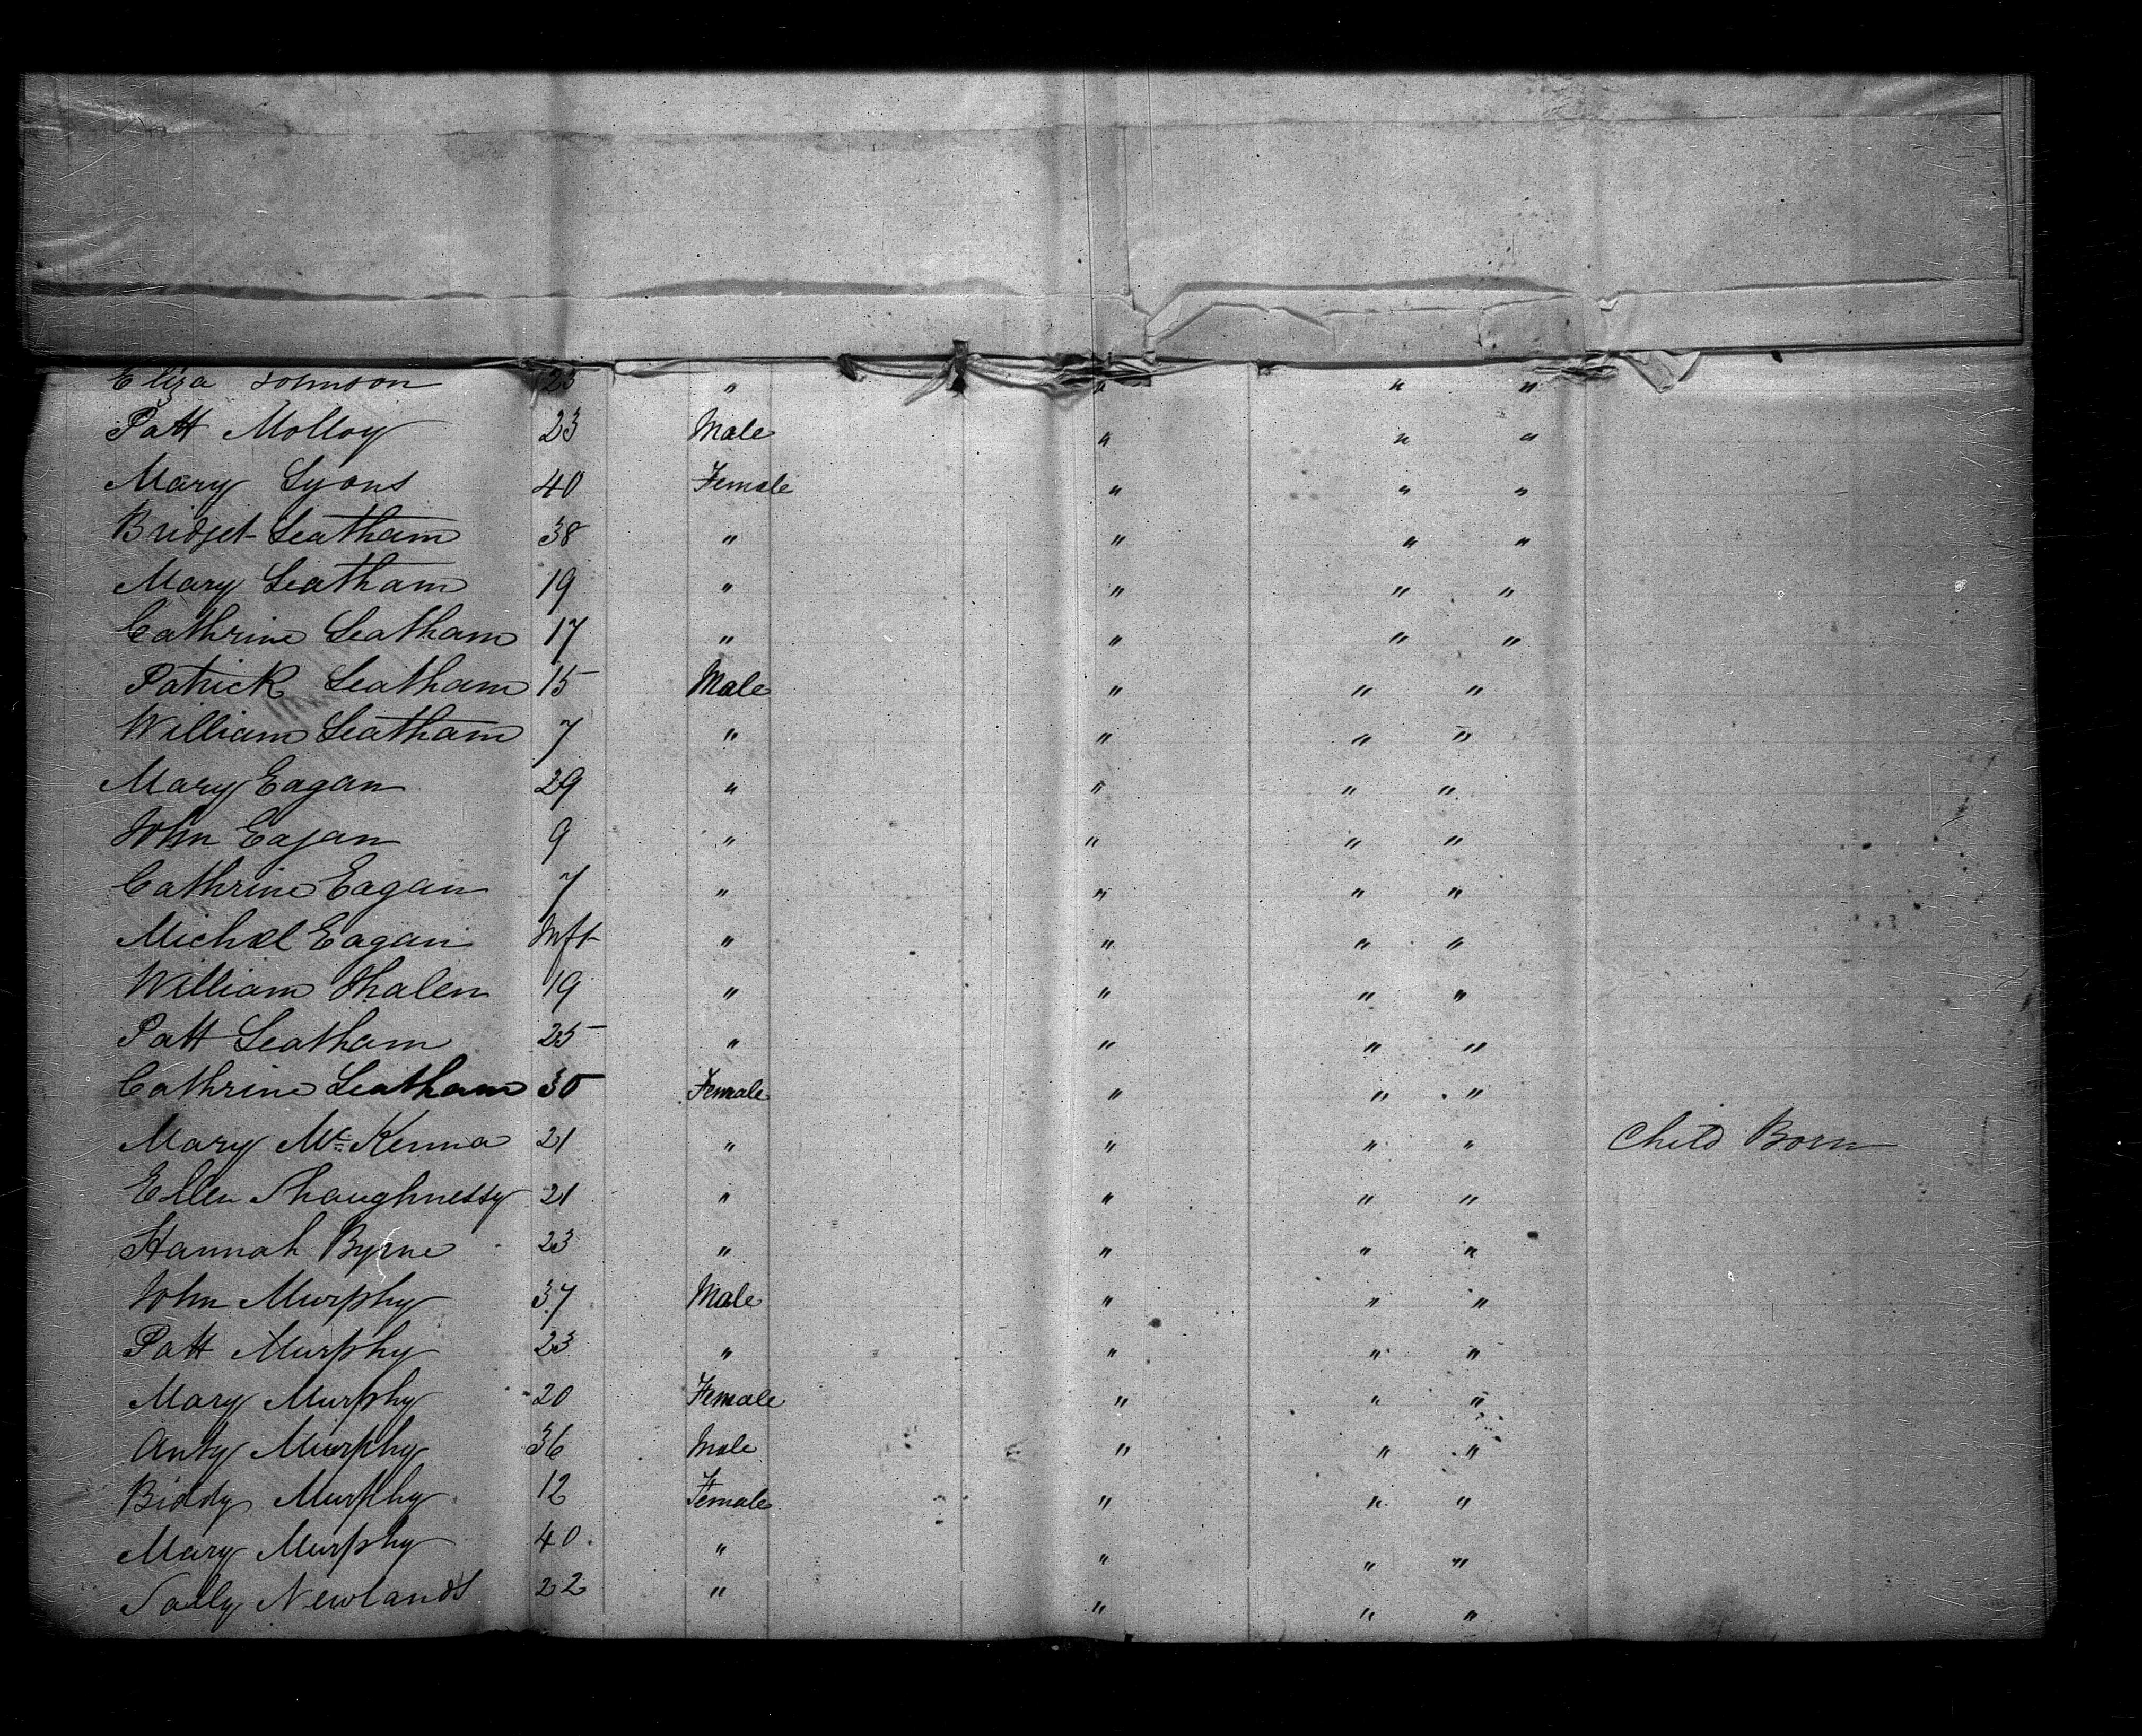 Eliza Johnson 23 " " " "
Patt Molloy 23 Male " " "
Mary Lyons 40 Female " " "
Bridget Leatham 38 " " " "
Mary Leatham 19 " " " "
Cathrine Leatham 17 " " " "
Patrick Leatham 15 Male " " "
William Leatham 7 " " " "
Mary Eagan 29 " " " "
John Eagan 9 " " " "
Cathrine Eagan 7 " " " "
Michael Eagan Inft " " " "
William 19 " " " "
Patt Leatham 25 " " " "
Cathrine Leatham 30 Female " " "
Mary McKenna 21 " " " " Child Born
Ellen Shaughnessy 21 " " " "
Hannah Byrne 23 " " " "
John Murphy 37 Male " " "
Patt Murphy 23 " " " "
Mary Murphy 20 Female " " "
Anty Murphy 36 Male " " "
Biddy Murphy 12 Female " " "
Mary Murphy 40 " " " "
Sally Newlands 22 " " " "